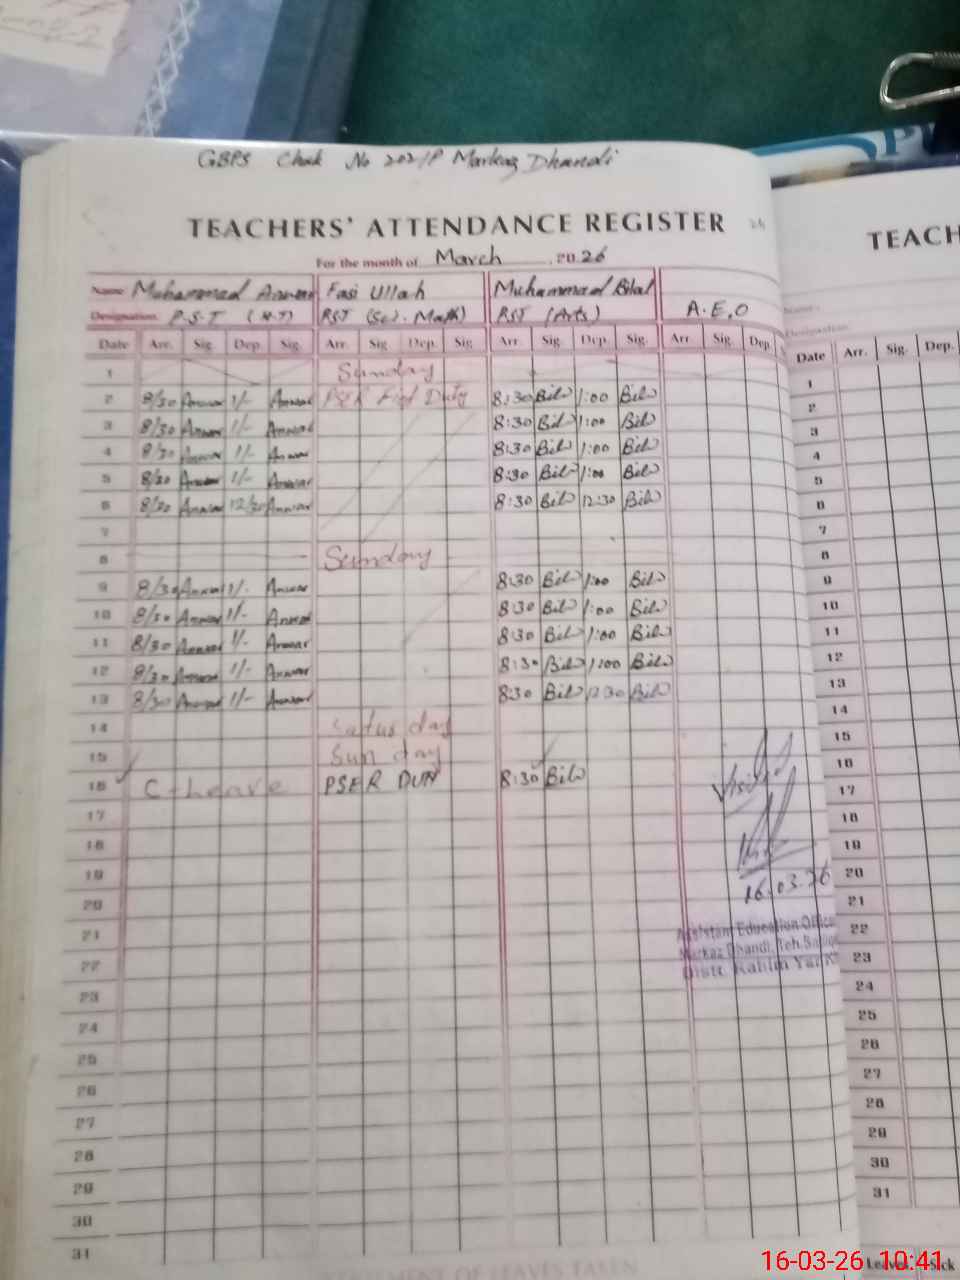 GBPS Chak No 202/P Markaz Dhandi
TEACHERS' ATTENDANCE REGISTER
For the month of March 2026
Name Muhammad Anwar Fasi Ullah Muhammad Bilal
Designation. P.S.T (H.T) PST (Sci. Math) PST (Arts) A.E.O
Date Arr. Sig. Dep. Sig. Arr. Sig Dep. Sig Arr. Sig. Dep. Sig. Arr. Sig. Dep.
1 Sunday
2 8/30 Anwar 1/- Anwar PSER Duty 8:30 Bilal 1:00 Bilal
3 8/30 Anwar 1/- Anwar 8:30 Bilal 1:00 Bilal
4 8/30 Anwar 1/- Anwar 8:30 Bilal 1:00 Bilal
5 8/30 Anwar 1/- Anwar 8:30 Bilal 1:00 Bilal
6 8/30 Anwar 12/30 Anwar 8:30 Bilal 12:30 Bilal
7
8 Sunday
9 8/30 Anwar 1/- Anwar 8:30 Bilal 1:00 Bilal
10 8/30 Anwar 1/- Anwar 8:30 Bilal 1:00 Bilal
11 8/30 Anwar 1/- Anwar 8:30 Bilal 1:00 Bilal
12 8/30 Anwar 1/- Anwar 8:30 Bilal 1:00 Bilal
13 8/30 Anwar 1/- Anwar 8:30 Bilal 12:30 Bilal
14 Saturday
15 Sun day
16 C-Leave PSER 8:30 Bilal
17
18
19
20
21
22
23
24
25
26
27
28
29
30
31
16.03.26
Assistant Education Office
Markaz Dhandi, Teh.
Distt. Rahim Yar
TEACH
Date Arr. Sig. Dep.
1
2
3
4
5
6
7
8
9
10
11
12
13
14
15
16
17
18
19
20
21
22
23
24
25
26
27
28
29
30
31
Leaves Sick
STATEMENT OF LEAVES TAKEN
16-03-26 10:41